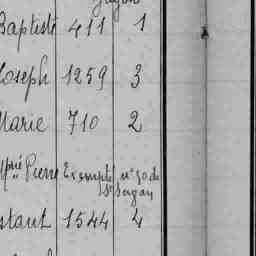 Baptiste 411 1
Joseph 1259 3
Marie 710 2
Pierre Exempté nº 50 de
Constant 1544 4